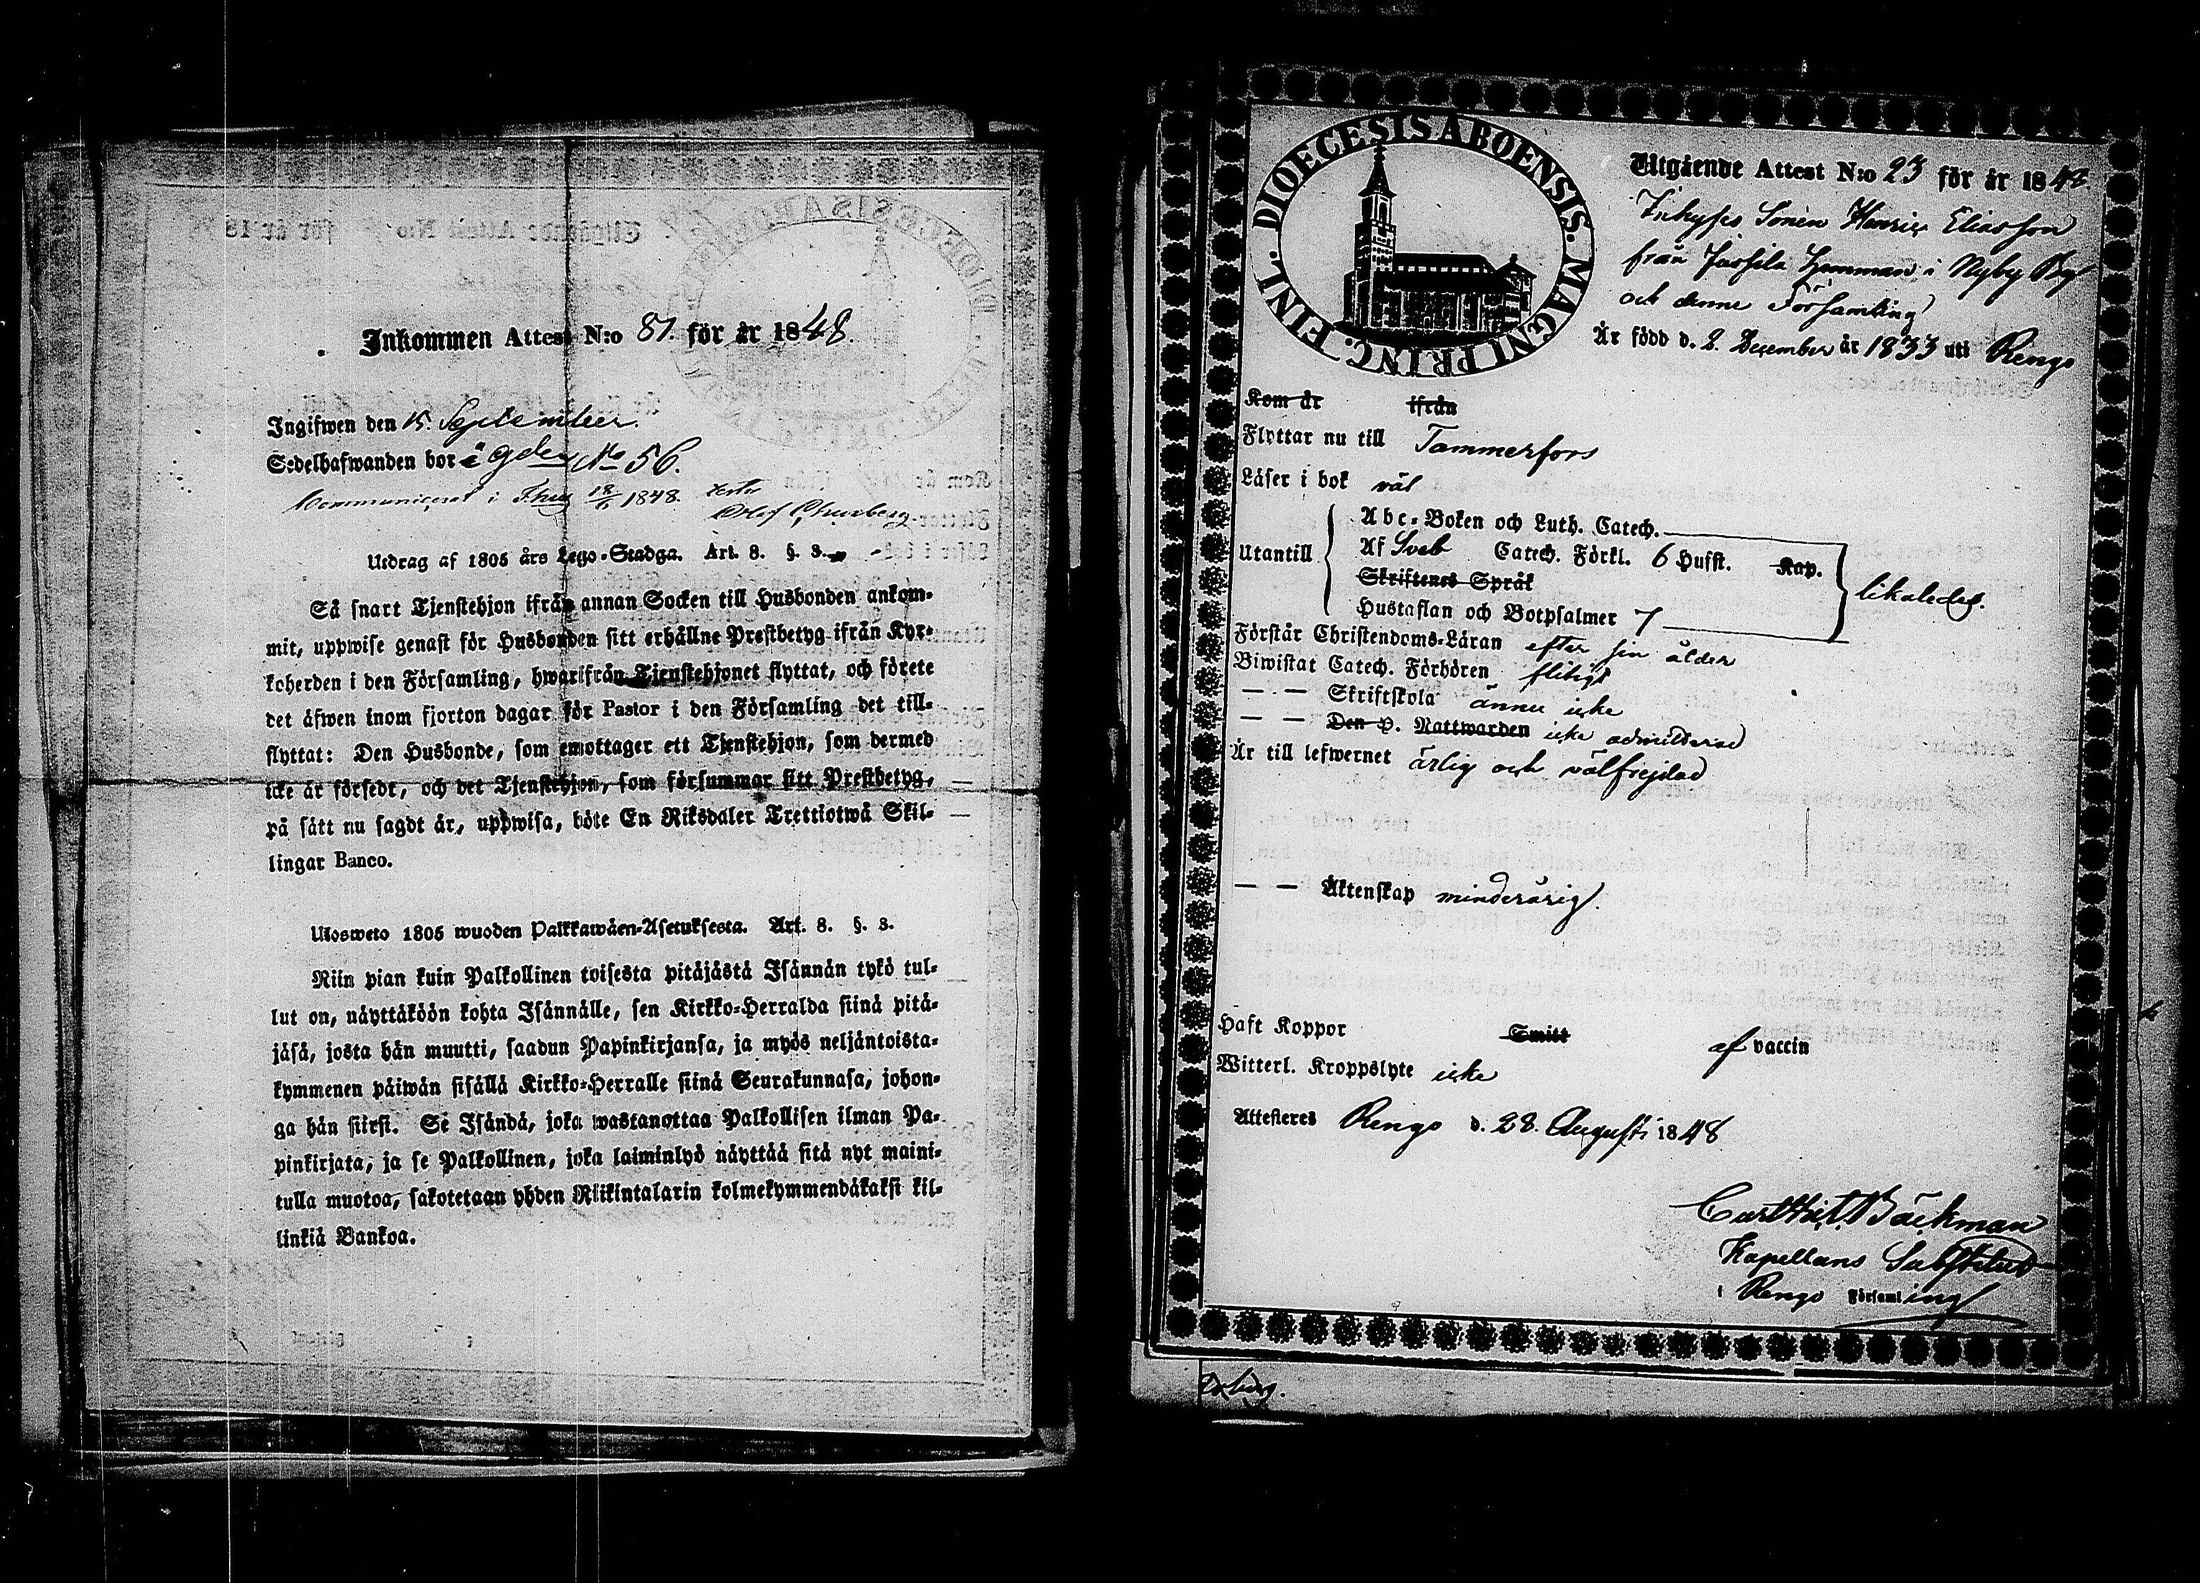 Inkommen Attest N:o 81. för år 1848.
Ingifwen den 15. September.
Sedelhafwanden bor å gden No 56.
Communicerat i 18/9 1848.
Utdrag af 1805 års Lego-Stadga. Art. 8. §. 3.
Så snart Tjenstehjon ifrån annan Socken till Husbonden ankom-
mit, uppwise genast för Husbonden sitt erhållne Prestbetyg ifrån Kyr-
koherden i den Församling, hwarifrån Tjenstehjonet flyttat, och förete
det äfwen inom fjorton dagar för Pastor i den Församling det till-
flyttat: Den Husbonde, som emottager ett Tjenstehjon, som dermed
icke är försedt, och det Tjenstehjon, som försummar sitt Prestbetyg,
på sätt nu sagdt är, uppwisa, böte En Riksdaler Trettiotwå Skil-
lingar Banco.
Ulosweto 1805 wuoden Palkkawäen-Asetuksesta. Art. 8. §. 3.
Niin pian kuin Palkollinen toisesta pitäjästä Isännän tykö tul-
lut on, näyttäköön kohta Isännälle, sen Kirkko-Herralda siinä pitä-
jäsä, josta hän muutti, saadun Papinkirjansa, ja myös neljäntoista-
kymmenen päiwän sisällä Kirkko-Herralle siinä Seurakunnasa, johon-
ga hän siirsi. Se Isändä, joka wastanottaa Palkollisen ilman Pa-
pinkirjata, ja se Palkollinen, joka laiminlyö näyttää sitä nyt maini-
tulla muotoa, sakotetaan yhden Riikintalarin kolmekymmendäkaksi kil-
linkiä Bankoa.
DIOECESIS ABOENSIS. MAGNI PRINC. FINL.
Utgående Attest N:o 23 för år 1848.
Inhyses Sonen Henric Eliasson
från Jussila Hemman i Nyby By
och denne Församling
Är född d. 2. December år 1833 uti Rengo
Kom år ifrån
Flyttar nu till Tammerfors
Läser i bok väl
Utantill
Abc-Boken och Luth. Catech.
Af Sveb Catech. Förkl. 6 Hufst. Kap.
Skriftenes Språk
Hustaflan och Botpsalmer 7
likaledes.
Förstår Christendoms-Läran efter sin ålder
Biwistat Catech. Förhören flitigt
— — Skriftskola ännu icke
— — Den H. Nattwarden icke admitterad
Är till lefwernet ärlig och välfrejdad
— — Äktenskap minderårig.
Haft Koppor Smitt af vaccin
Witterl. Kroppslyte icke
Attesteres Rengo d. 28. Augusti 1848
Bäckman
Kapellans Substitut
i Rengo Församling